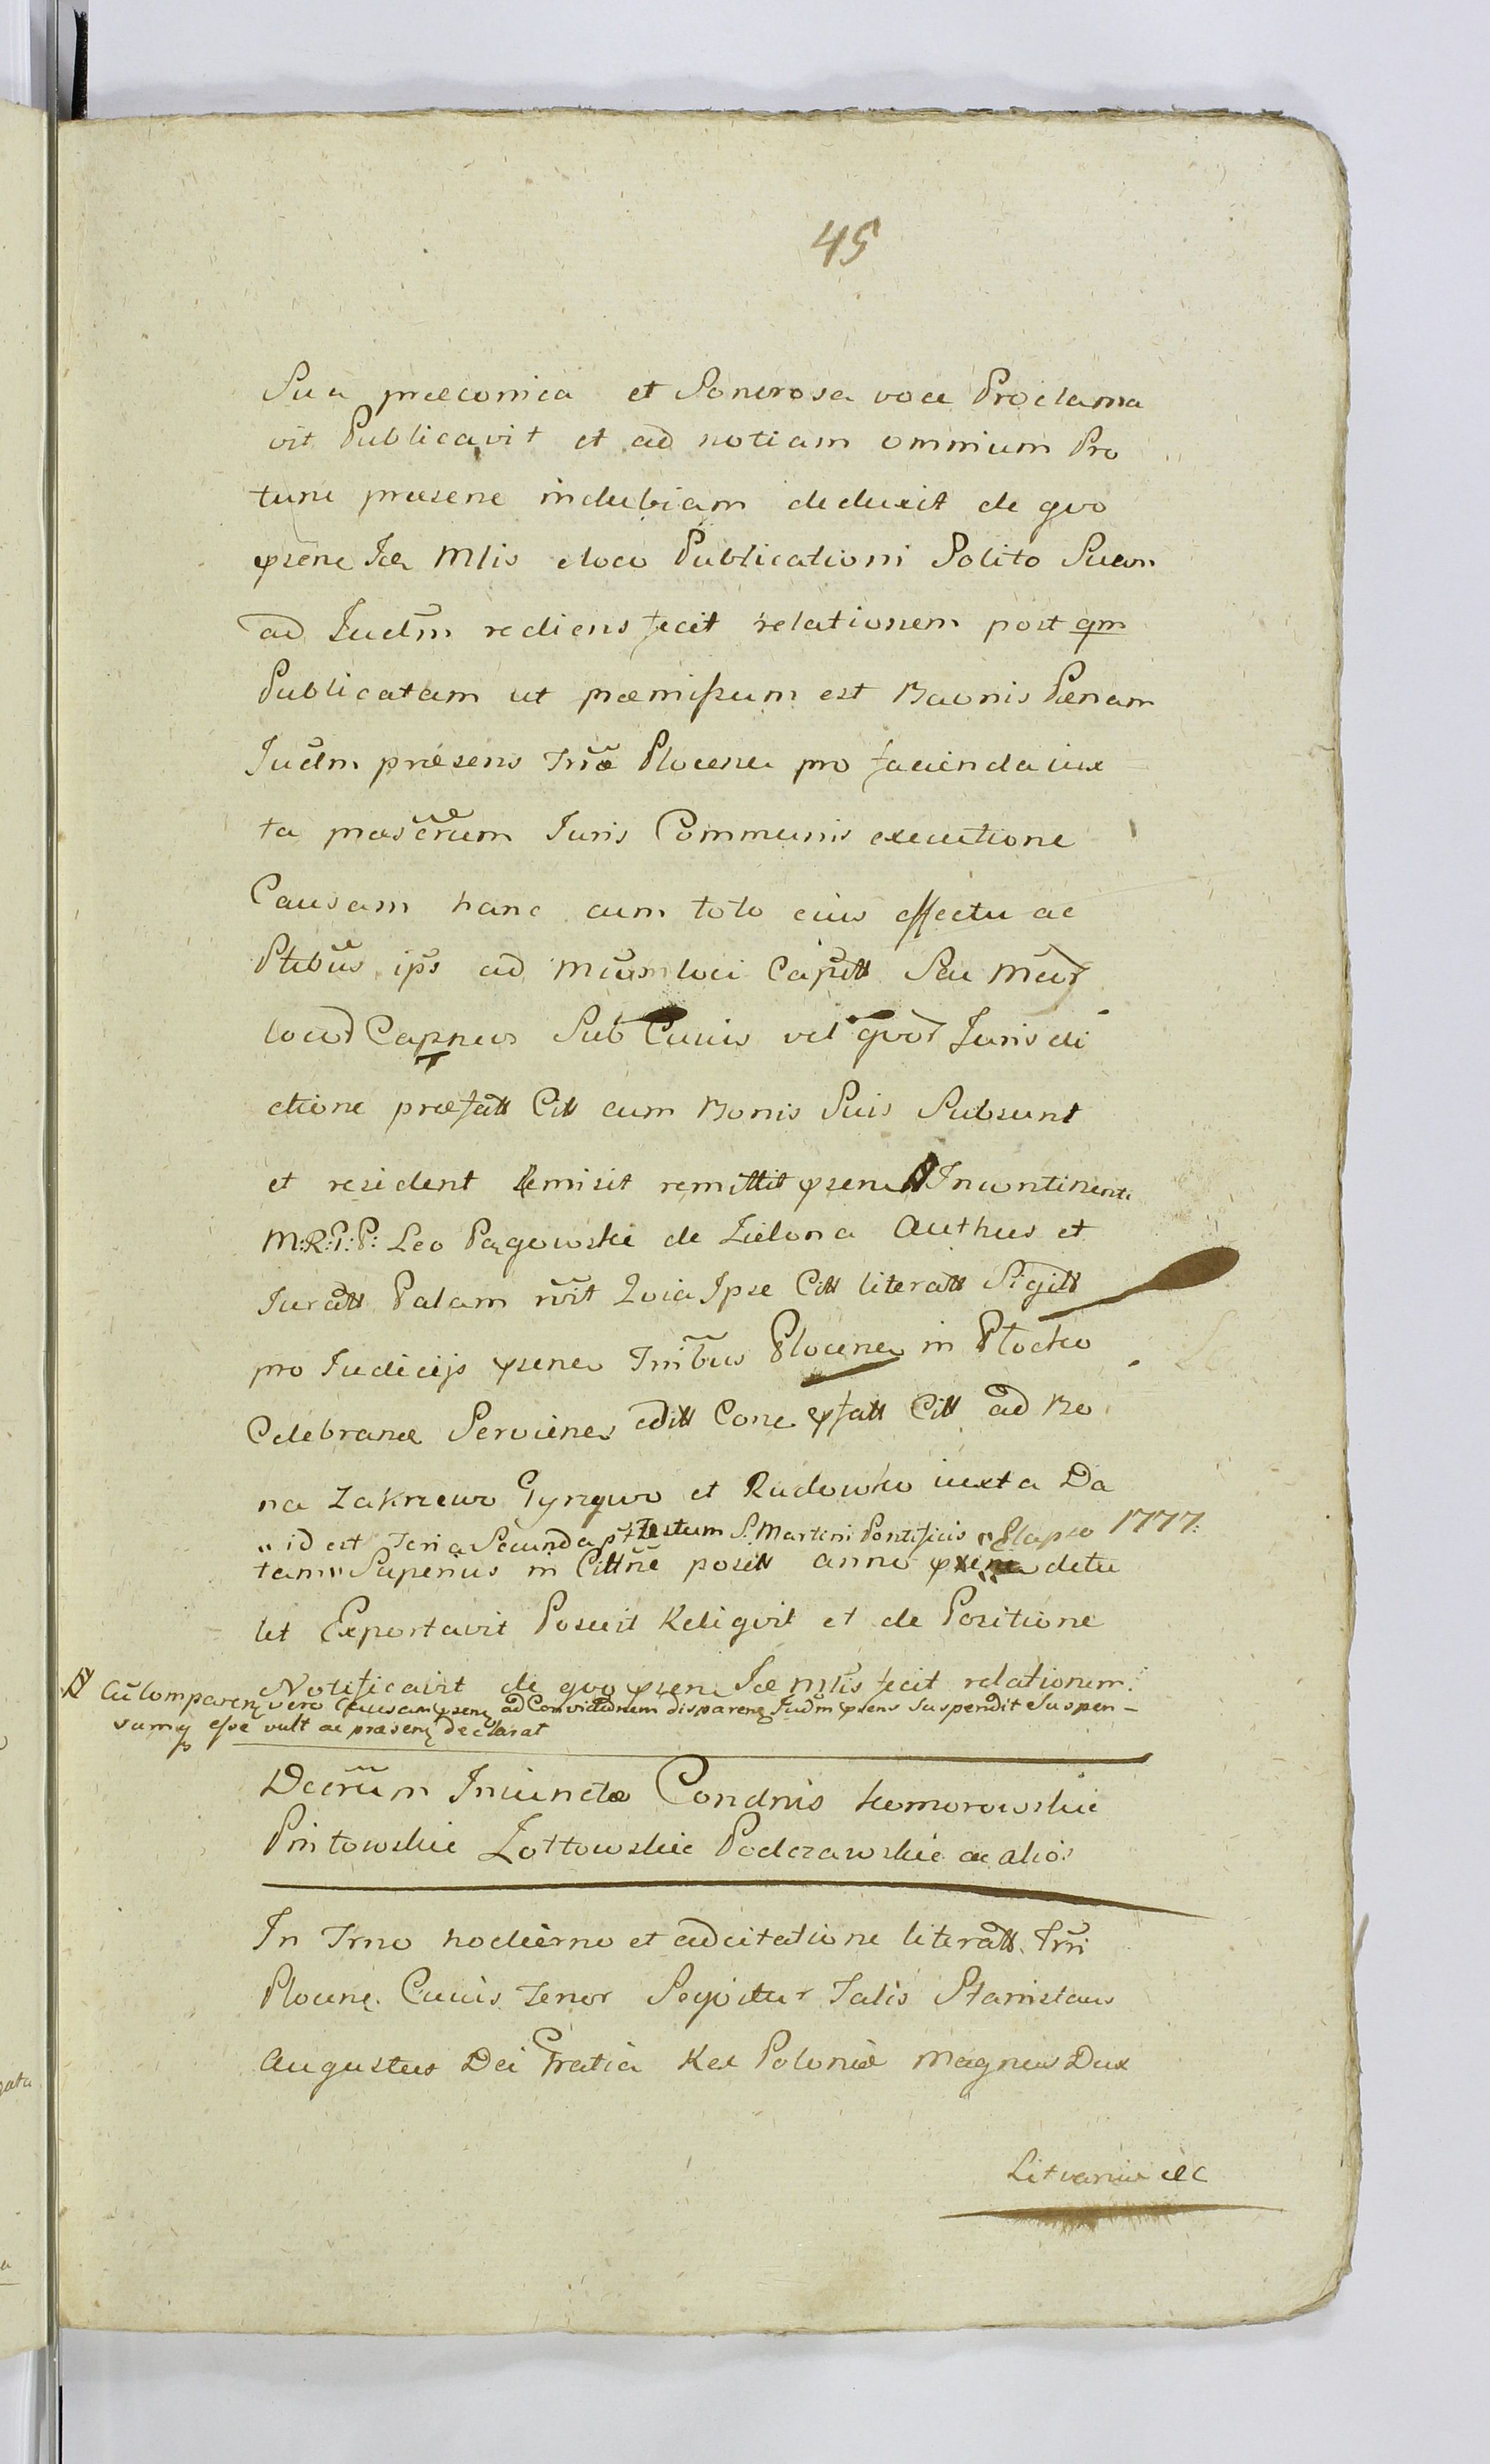 45
Sua præconica et Sonorosa voce Proclama
vit Publicavit et ad notiam omnium Pro
tunc præsene indubiam deduxit de qvo
psene Jca Mlis eloco Publicationi Solito Suam
ad Judm rediens fecit relationem post qm
Publicatam ut præmissum est Baonis Pænam
Judm præsens Trîæ Plocene pro facienda iux
ta præscrûm Juris Communis executione
Causam hanc cum toto eius effectu ac
Ptibus ips ad mûm loci Capitt Seu meor
locor Capneos Sub Cuius vel qvor Jurisdi
ctione præfatt Citt cum Bonis Suis Subsunt
et resident Remisit remittit psene Incontinenti
M:R:P:P: Leo Pągowski de Zielona Authus et
Juratt Palam rvit Qvia Ipse Citt literatt Sigill
pro Judicijs psenes Tribus Plocenes in Płocko
Celebrane Servienes editt Cone pfatt Citt ad Bo
na Zakrzewo Gyzewo et Rudowko iuxta Da
„ id est Feria Secunda pt Festum S. Martini Pontificis „ Elapso 1777:
tam „ Superius in Cittne positt anno detu
lit Exportavit Posuit Reliqvit et de Positione
Notificavit de qvo psene Jcæ mlis fecit relationem.
Cû Comparenę vero Causam psenę ad Convictionem disparenę Judm psens Suspendit Suspen-
samq esse vult ac præsenę declarat
Decrûm Iniunctæ Condnis Komorowskie
Pintowskie Zottowskie Podczawskie ac alios
In Trno hodierno et adcitatione literatt Trii
Plocenę. Cuius tenor Seqvitur Talis Stanislaus
Augustus Dei Gratia Rex Poloniæ Magnus Dux
Litvaniæ &c